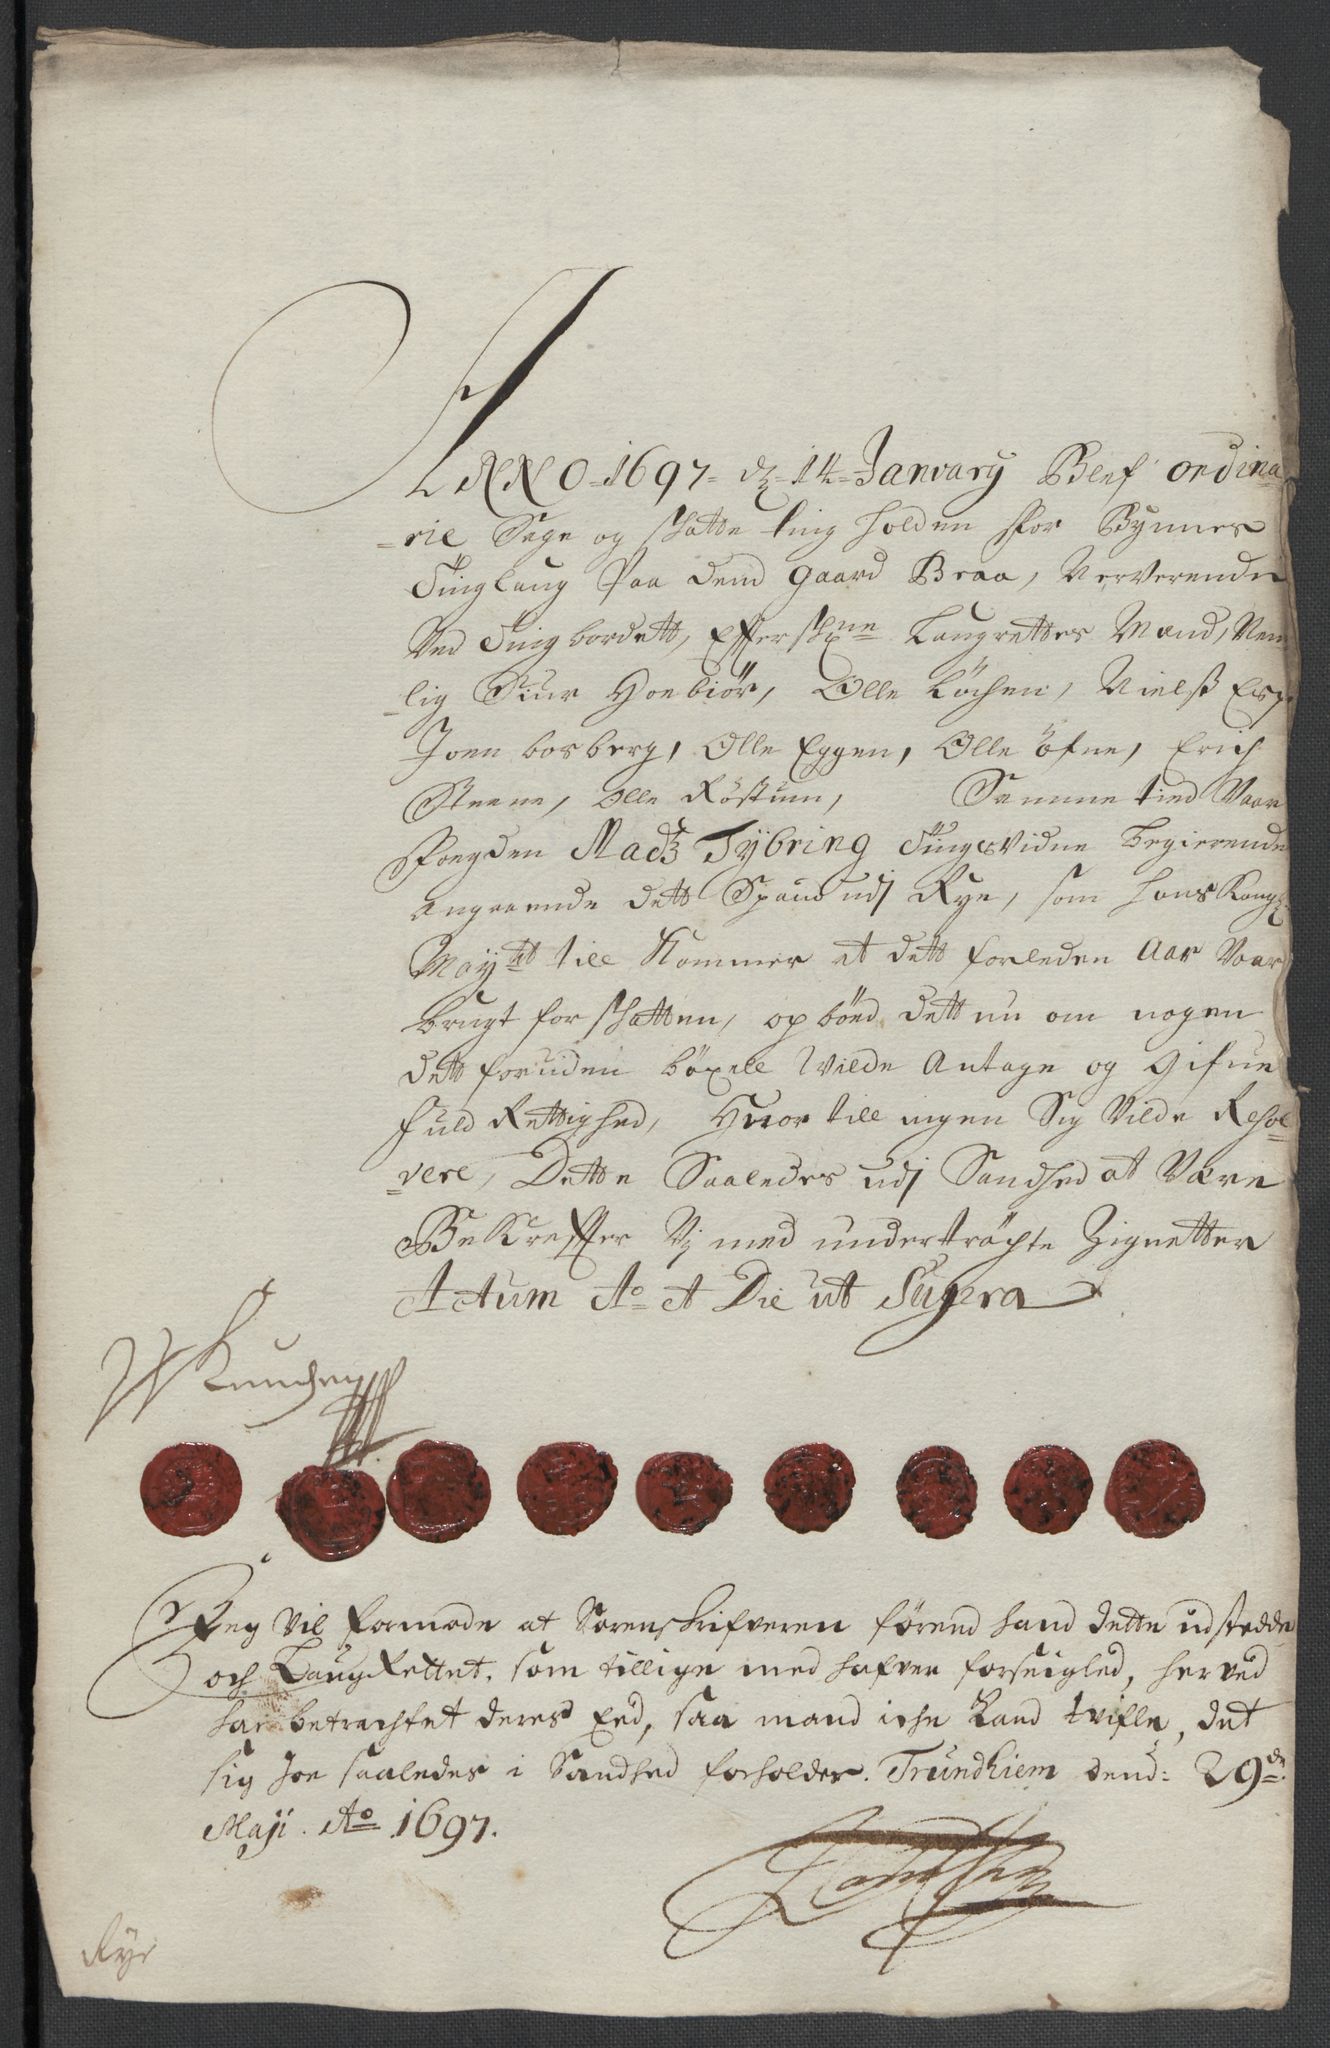 ANNO 1697 dz 14 January Blef ordina-
-rie Sage og schatte ting holden for Bynnes
Tinglaug Paa dend gaard Braa, Nerverende
Ved Tingbordett, Effterschne Laugrettes Mænd, Nem-
-lig Siur Hoebiör, Olle Löchen, Nielß Esp
Joen bosberg, Olle Eggen, Olle öfne, Erich
Steene, Olle Röstum, Samme tied Vaar
Foegden Madtz Tybring Tingsvidne begierende
angaaende dett Spand udj Rye, som hans Kongl:
Mayst till Kommer at dett forleden Aar Vaar
brugt for schatten, op böed dett nu om nogen
dett foruden böxell Wilde Antage og Gifue
fuld Rettighed, Huor till ingen Sig Vilde Resol-
-vere, Dette Saaledes udj Sandhed at Være
Bekreffter Vj med undertröchte Zignetter
Actum Ao et Die ut Supera
Jeg vil formode at Sorenskrifveren førend hand dette udstedde
och LaugRettet. som tillige med hafver forseigled, herved
har betrachtet deres Eed, saa mand iche kand tvifle, det
sig joe saaledes i Sandhed forholder. Trundhiem dend: 29de
Maji. Ao 1697.
Rye